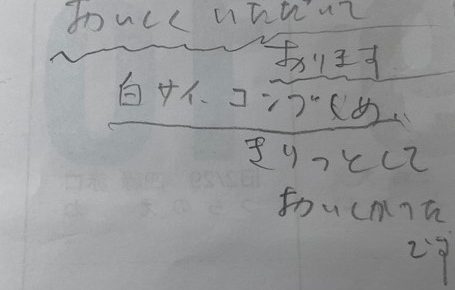 おいしく いただいて
おります
白サイ、コンブじめ、
きりっとして
おいしかった
です